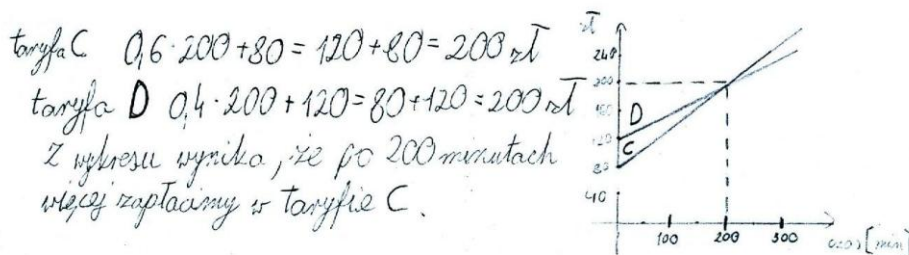 taryfa C 0,6·200+80=120+80=200 zł
taryfa D 0,4·200+120=80+120=200 zł
Z wykresu wynika, że po 200 minutach
więcej zapłacimy w taryfie C.
zł
240
200
160
120
80
40
D
C
100
200
300
czas [min]